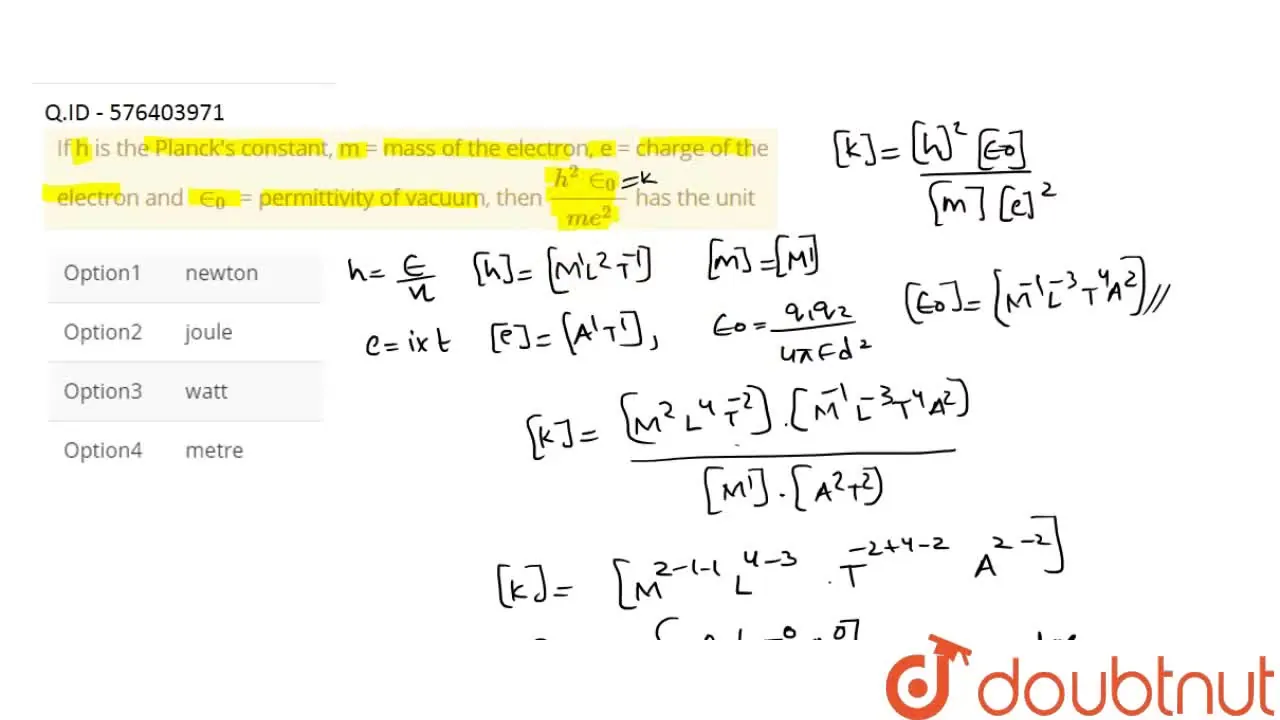 Q.ID - 576403971
If h is the Planck's constant, m = mass of the electron, e = charge of the
electron and ∈₀ = permittivity of vacuum, then h² ∈₀ / me² =k has the unit
[k] = [h]² [∈0] / [m] [e]²
Option1 newton
Option2 joule
Option3 watt
Option4 metre
h = E/ν [h] = [M¹L²T⁻¹] [m] = [M¹]
e = i×t [e] = [A¹T¹], ∈0 = q₁q₂ / 4πFd² [∈0] = [M⁻¹L⁻³T⁴A²] //
[k] = [M²L⁴T⁻²] . [M⁻¹L⁻³T⁴A²] / [M¹] . [A²T²]
[k] = [M²⁻¹⁻¹ L⁴⁻³ . T⁻²⁺⁴⁻² A²⁻²]
doubtnut